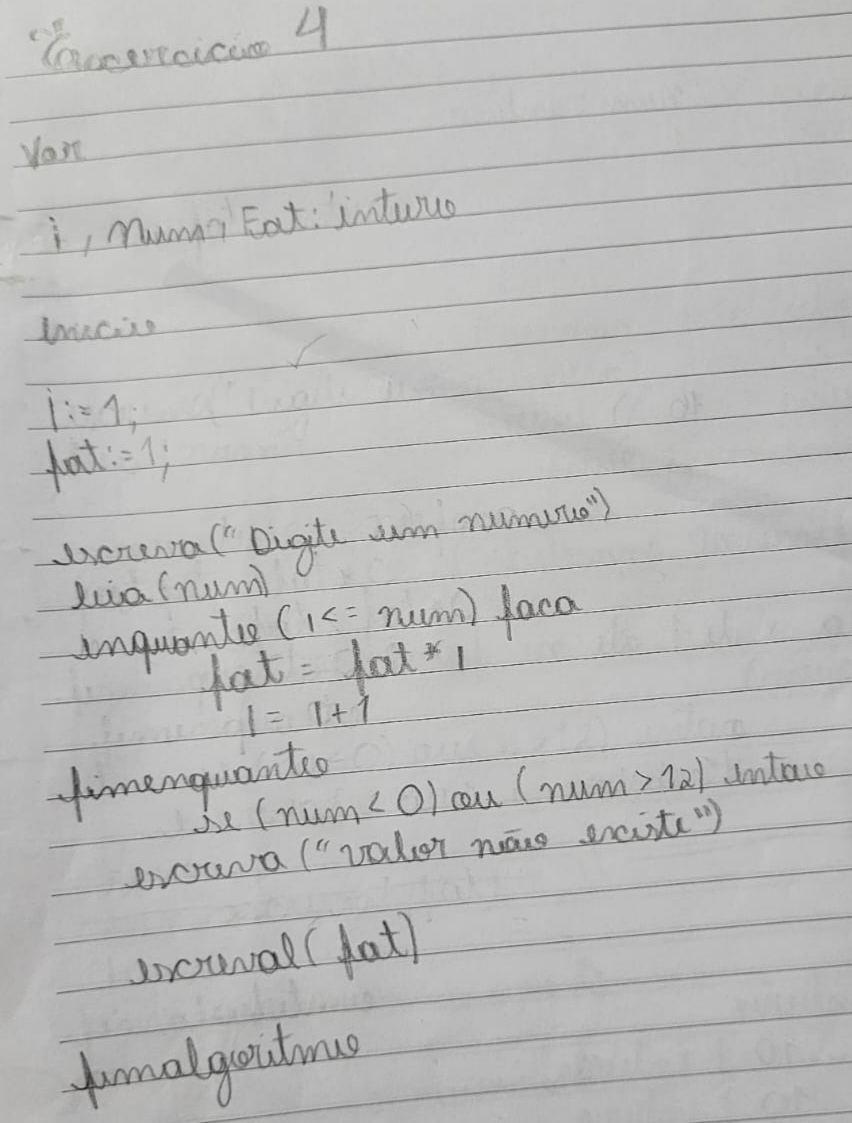 Exercicio 4
Var
i, num, Fat: inteiro
inicio
i:=1;
fat:=1;
escreva("Digite um numero")
leia(num)
enquanto (i<= num) faca
fat = fat * i
i = i+1
fimenquanto
se (num < 0) ou (num > 12) entao
escreva ("valor não existe")
escreval(fat)
fimalgoritmo